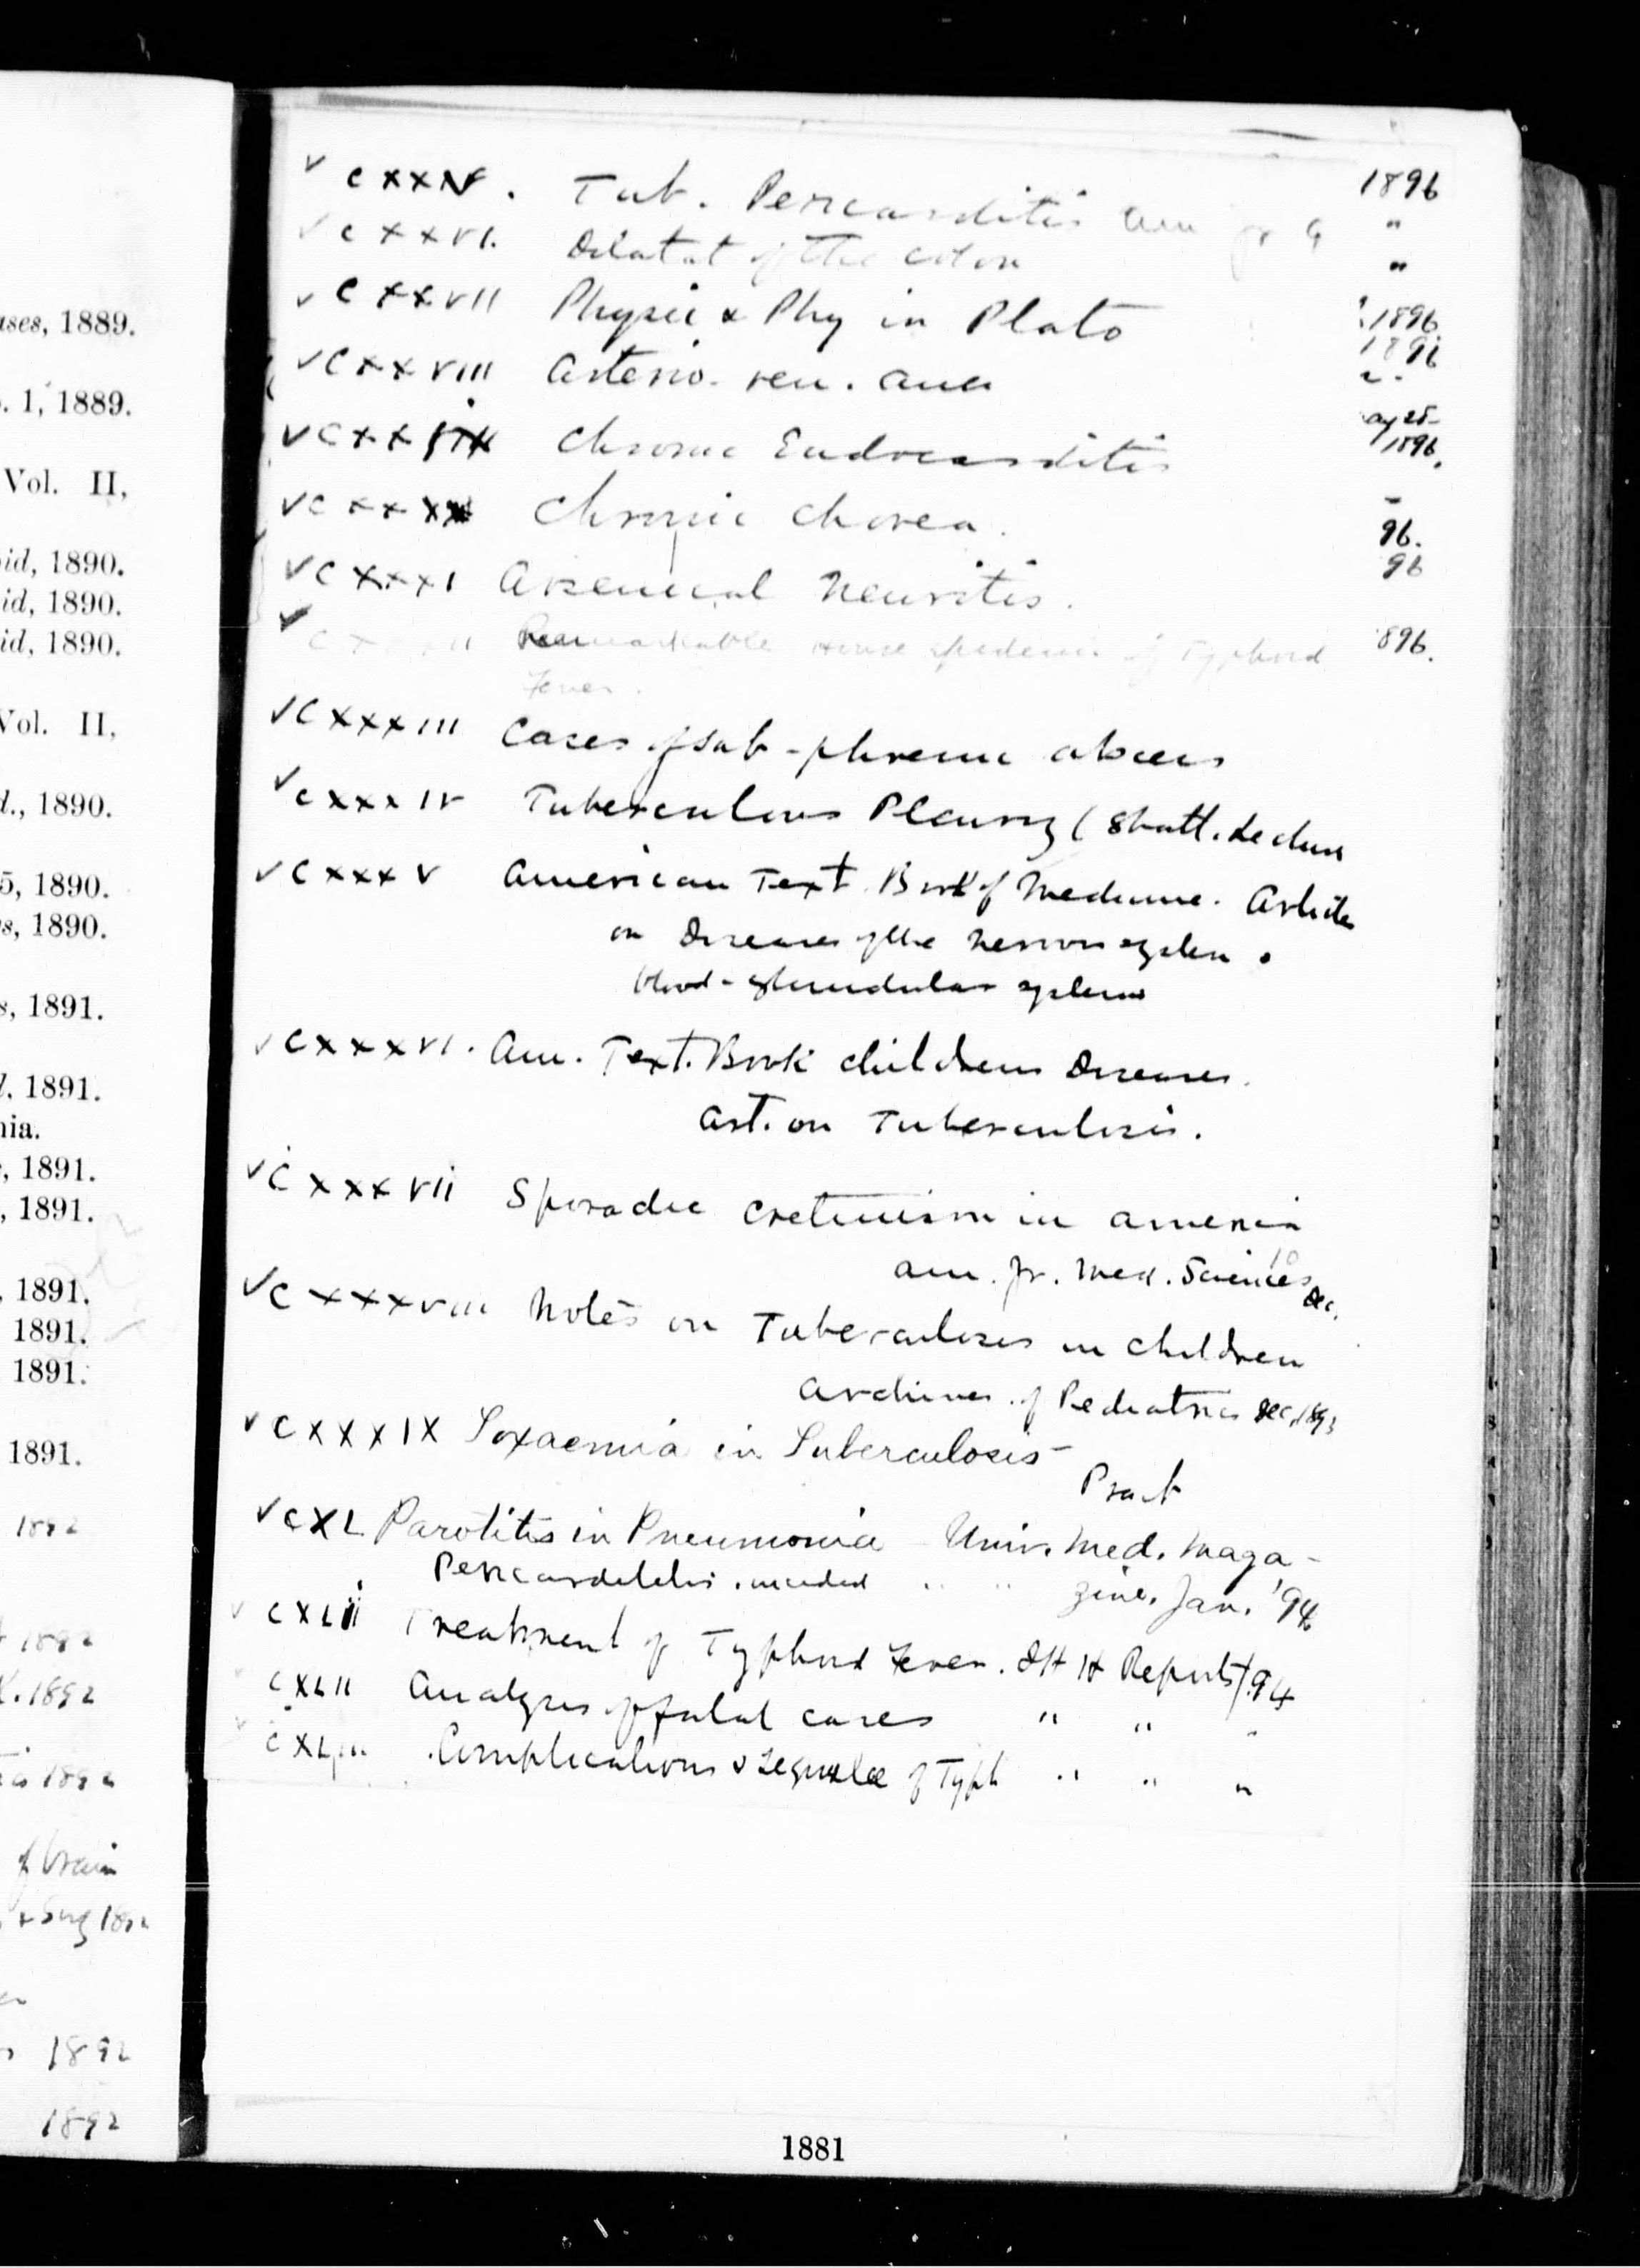 ases, 1889.
. 1, 1889.
Vol. II,
id, 1890.
id, 1890.
id, 1890.
Vol. II,
d., 1890.
5, 1890.
s, 1890.
s, 1891.
1891.
nia.
, 1891.
, 1891.
, 1891.
1891.
1891.
1891.
1892
1892
1892
1892
of brain
& Surg 1892
1892
1892
✓ CXXV. Tub. Pericarditis Am Jr 1896
✓ CXXVI. Dilatat of the colon "
"
✓ CXXVII Physic & Phy in Plato 1896
✓ CXXVIII Arterio-ven. aneu
✓ CXXIX Chronic Endocarditis 1896.
✓ CXXX Chronic Chorea. 96.
✓ CXXXI Arsenical Neuritis. 96
✓ CXXXII Remarkable House epidemic of Typhoid 896.
Fever.
✓ CXXXIII Cases of sub-phrenic abscess
✓ CXXXIV Tuberculous Pleurisy (Shatt. Lecture
✓ CXXXV American Text Book of Medicine. Articles
on Diseases of the nervous system.
blood-glandular system
✓ CXXXVI. Am. Text. Book childrens Diseases.
Art. on Tuberculosis.
✓ CXXXVII Sporadic cretinism in America
Am. Jr. Med. Sciences Dec.
✓ CXXXVIII Notes on Tuberculosis in Children
Archives of Pediatrics Dec, 1893
✓ CXXXIX Toxaemia in Tuberculosis –
Pract
✓ CXL Parotitis in Pneumonia – Univ. Med. Maga-
zine, Jan. '94
Pericarditis " "
✓ CXLII Treatment of Typhoid Fever. JHH Reports/94
CXLII Analysis of fatal cases " " "
CXLIII Complications & Sequelae of Typh " " "
1881